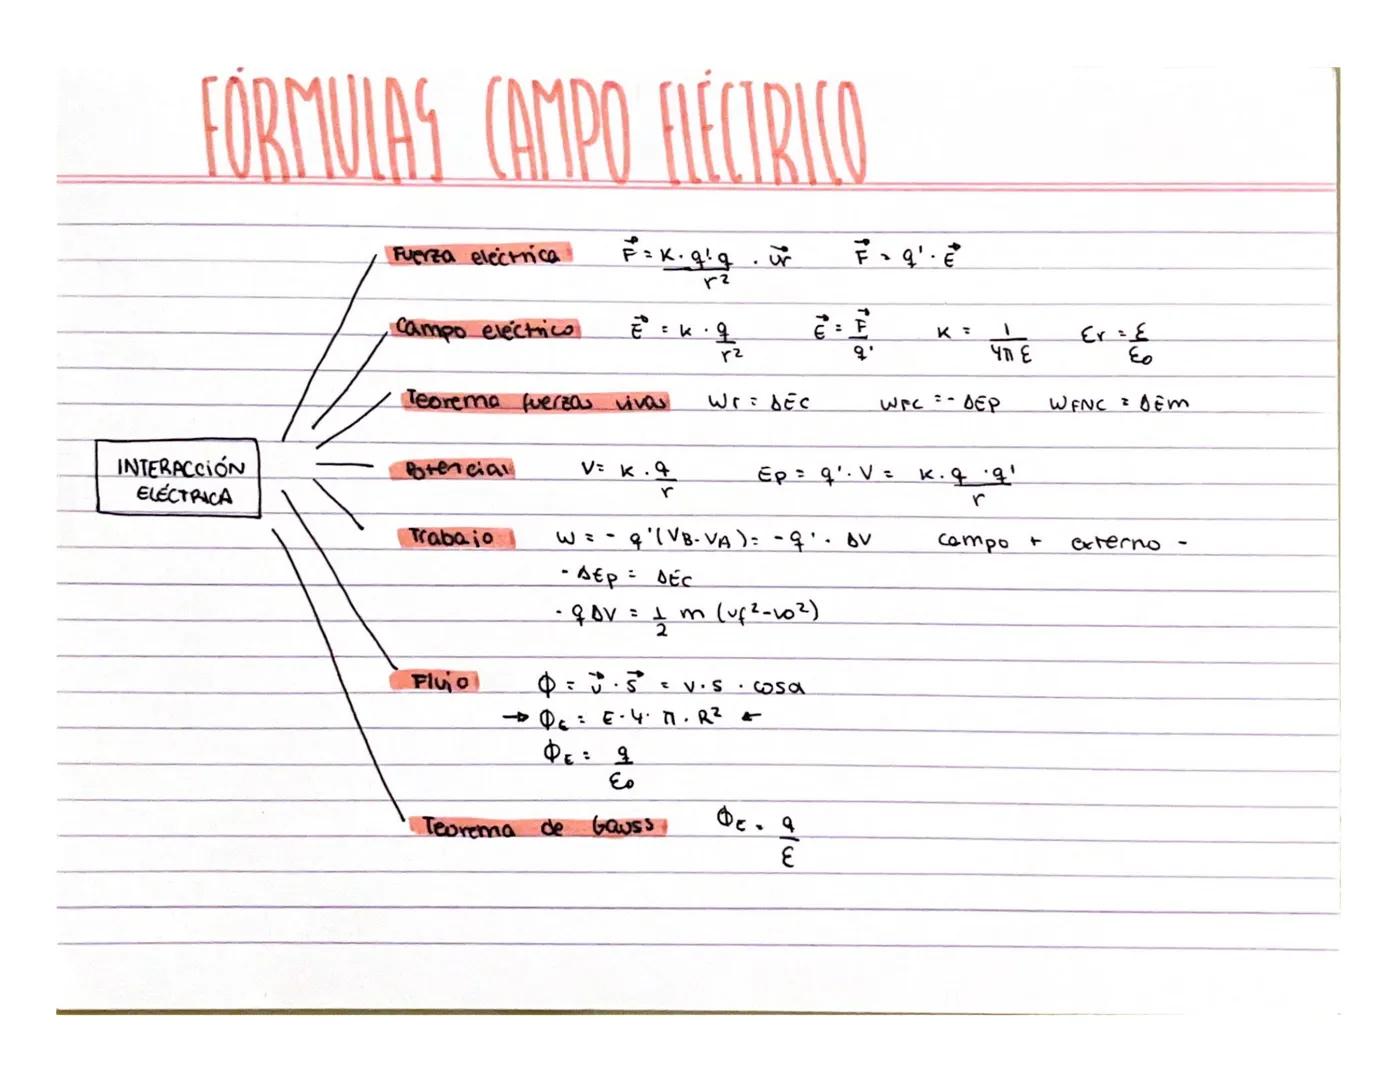 FÓRMULAS CAMPO ELÉCTRICO
Fuerza eléctrica F⃗ = K · q'·q / r² · u⃗r F⃗ = q' · E⃗
Campo eléctrico E⃗ = K · q / r² E⃗ = F⃗ / q' K = 1 / 4π ε εr = ε / ε0
Teorema fuerzas vivas WF = ΔEc WFC = - ΔEp WFNC = ΔEm
INTERACCIÓN
ELÉCTRICA
Potencial V = K · q / r Ep = q' · V = K · q · q' / r
Trabajo W = - q'(VB-VA) = - q' · ΔV campo + externo -
- ΔEp = ΔEc
- q ΔV = 1/2 m (vf²-vo²)
Flujo Φ = v⃗ · s⃗ = v · s · cosα
→ ΦE = E · 4 · π · R² ←
ΦE = q / ε0
Teorema de Gauss ΦE = q / ε